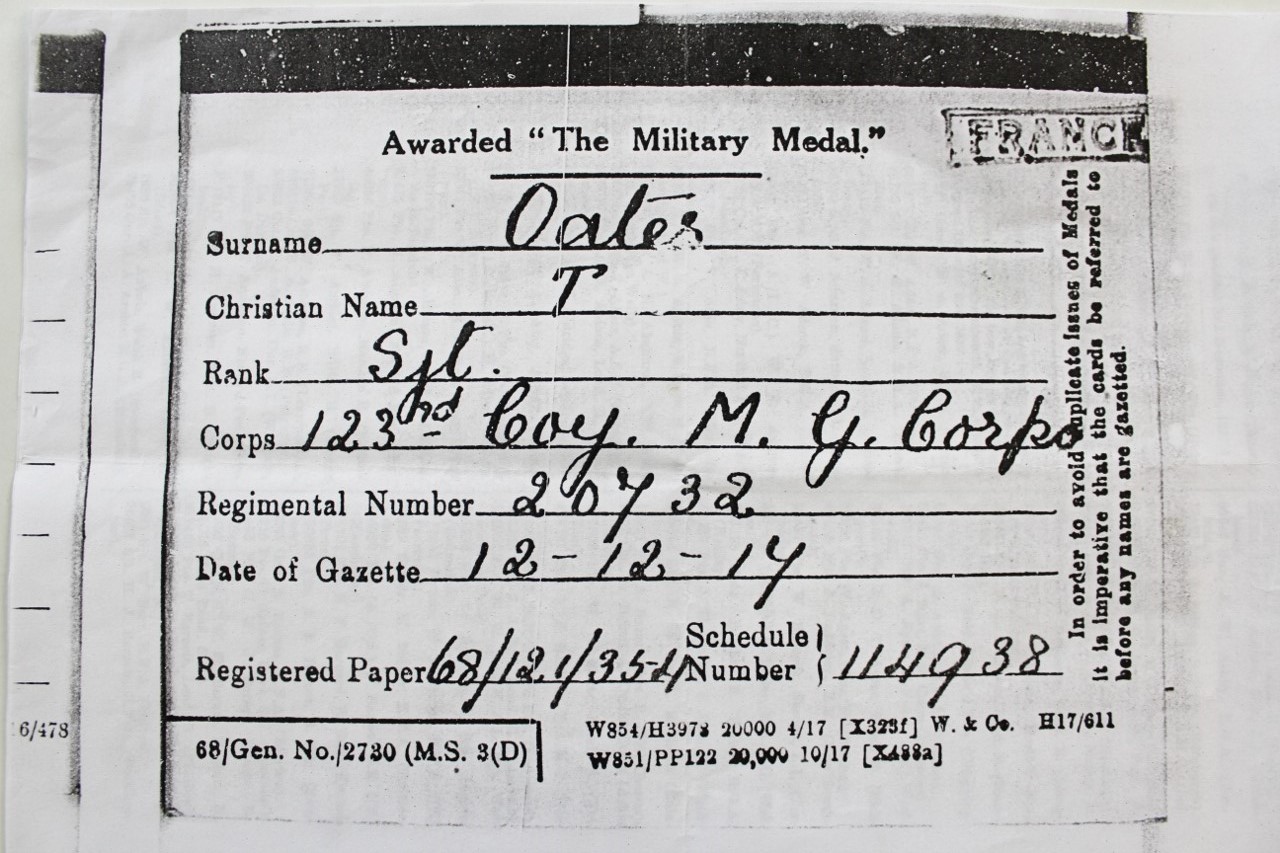 Awarded "The Military Medal."
FRANCE
Surname Oates
Christian Name T
Rank Sjt.
Corps 123rd Coy. M. G. Corps
Regimental Number 20732
Date of Gazette 12-12-17
Registered Paper 68/121/354 Schedule Number 114938
In order to avoid duplicate issues of Medals
it is imperative that the cards be referred to
before any names are gazetted.
6/478
68/Gen. No./2730 (M.S. 3(D)
W854/H3978 20000 4/17 [X323f] W. & Co. H17/611
W851/PP122 20,000 10/17 [X488a]